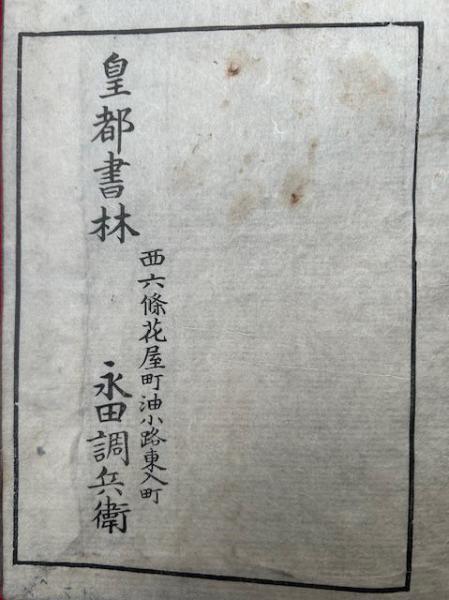 皇都書林
西六條花屋町油小路東入町
永田調兵衛